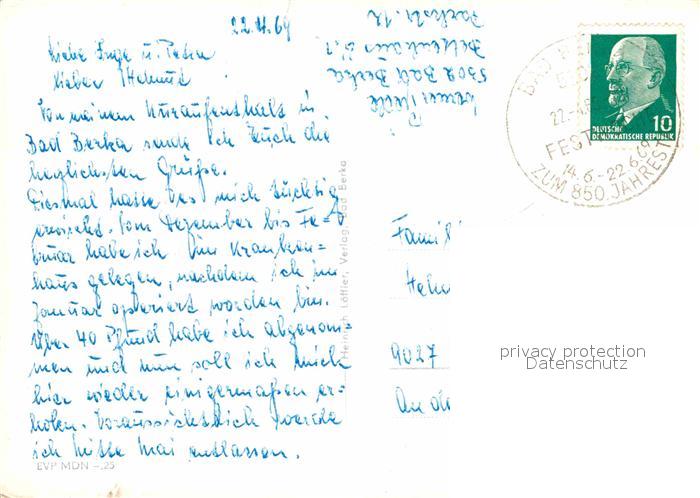 22.4.69
Liebe Inge u. Petra
Lieber Helmut
Von meinem Kuraufenthalt in
Bad Berka sende ich Euch die
herzlichsten Grüße.
Diesmal hatte es mich tüchtig
erwischt. Vom Dezember bis Fe-
bruar habe ich im Kranken-
haus gelegen, nachdem ich im
Januar operiert worden bin.
Über 40 Pfund habe ich abgenom-
men und nun soll ich mich
hier wieder einigermaßen er-
holen. Voraussichtlich werde
ich Mitte Mai entlassen.
EVP MDN -,25
Heinrich Löffler, Verlag, Bad Berka
Werner
5302 Bad Berka
BAD
22.4.
FEST
14.6.-22.6.69
ZUM 850.JAHREST
DEUTSCHE
DEMOKRATISCHE REPUBLIK
10
Famili
9027
An de
privacy protection
Datenschutz